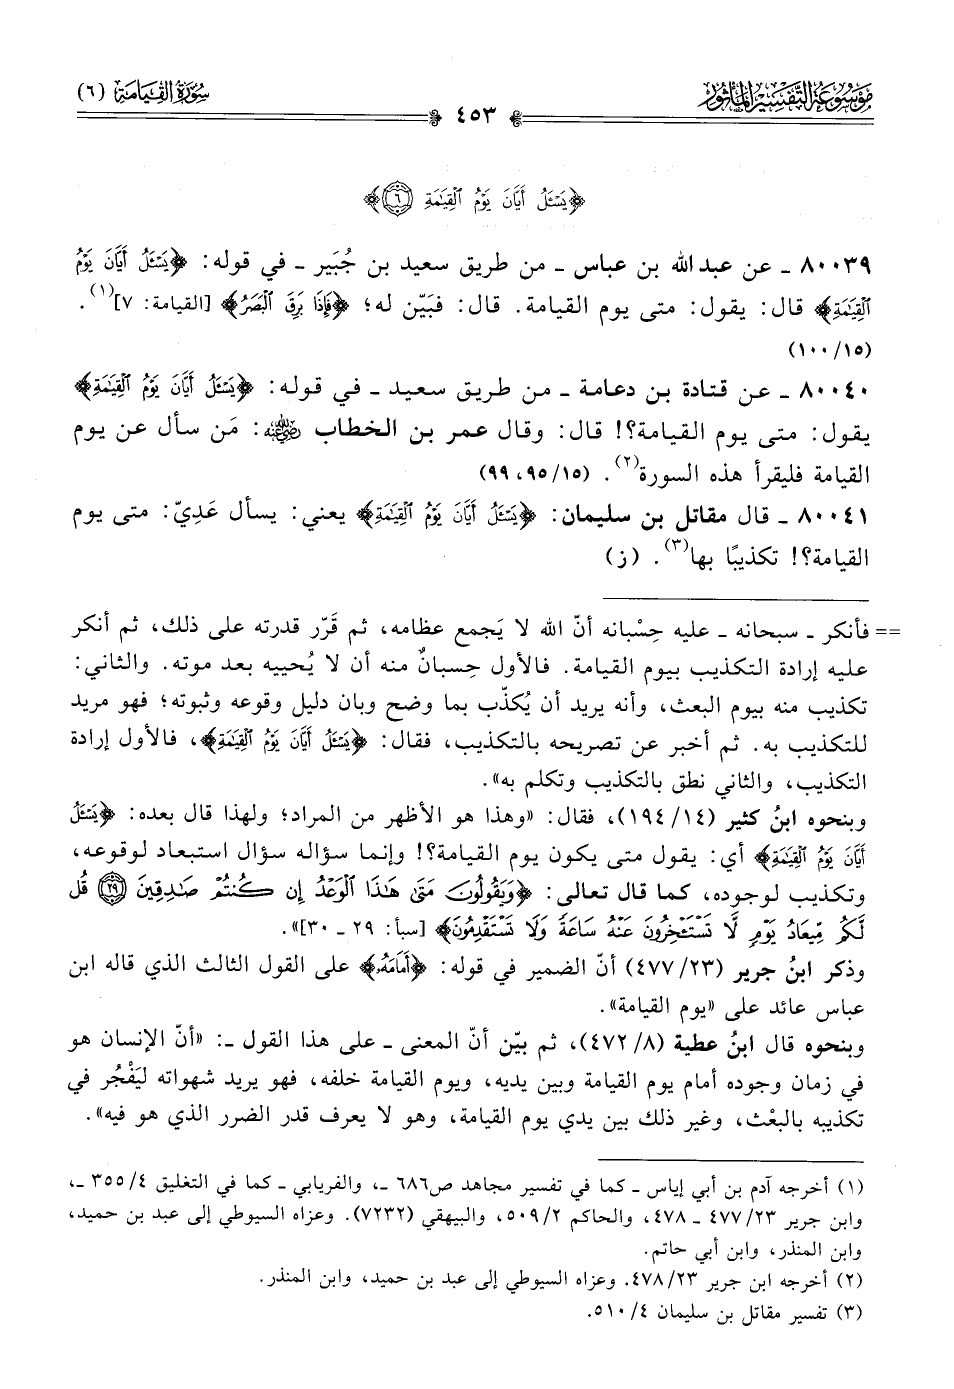 موسوعة التفسير المأثور
سورة القيامة (٦)
٤٥٣
﴿يَسْـَٔلُ أَيَّانَ يَوْمُ ٱلْقِيَـٰمَةِ ٦﴾
٨٠٠٣٩ ـ عن عبد الله بن عباس ـ من طريق سعيد بن جُبَير ـ في قوله: ﴿يَسْـَٔلُ أَيَّانَ يَوْمُ
ٱلْقِيَـٰمَةِ﴾ قال: يقول: متى يوم القيامة. قال: فبَيّن له؛ ﴿فَإِذَا بَرِقَ ٱلْبَصَرُ﴾ [القيامة: ٧](١).
(١٥/ ١٠٠)
٨٠٠٤٠ ـ عن قتادة بن دعامة ـ من طريق سعيد ـ في قوله: ﴿يَسْـَٔلُ أَيَّانَ يَوْمُ ٱلْقِيَـٰمَةِ﴾
يقول: متى يوم القيامة؟! قال: وقال عمر بن الخطاب رضي الله عنه: مَن سأل عن يوم
القيامة فليقرأ هذه السورة(٢). (١٥/ ٩٥، ٩٩)
٨٠٠٤١ ـ قال مقاتل بن سليمان: ﴿يَسْـَٔلُ أَيَّانَ يَوْمُ ٱلْقِيَـٰمَةِ﴾ يعني: يسأل عَدِيّ: متى يوم
القيامة؟! تكذيبًا بها(٣). (ز)
== فأنكر ـ سبحانه ـ عليه حِسْبانه أنّ الله لا يَجمع عظامه، ثم قَرّر قدرته على ذلك، ثم أنكر
عليه إرادة التكذيب بيوم القيامة. فالأول حِسبانٌ منه أن لا يُحييه بعد موته. والثاني:
تكذيب منه بيوم البعث، وأنه يريد أن يُكذّب بما وضح وبان دليل وقوعه وثبوته؛ فهو مريد
للتكذيب به. ثم أخبر عن تصريحه بالتكذيب، فقال: ﴿يَسْـَٔلُ أَيَّانَ يَوْمُ ٱلْقِيَـٰمَةِ﴾، فالأول إرادة
التكذيب، والثاني نطق بالتكذيب وتكلم به».
وبنحوه ابنُ كثير (١٤/ ١٩٤)، فقال: «وهذا هو الأظهر من المراد؛ ولهذا قال بعده: ﴿يَسْـَٔلُ
أَيَّانَ يَوْمُ ٱلْقِيَـٰمَةِ﴾ أي: يقول متى يكون يوم القيامة؟! وإنما سؤاله سؤال استبعاد لوقوعه،
وتكذيب لوجوده، كما قال تعالى: ﴿وَيَقُولُونَ مَتَىٰ هَـٰذَا ٱلْوَعْدُ إِن كُنتُمْ صَـٰدِقِينَ ٢٩ قُل
لَّكُم مِّيعَادُ يَوْمٍ لَّا تَسْتَـْٔخِرُونَ عَنْهُ سَاعَةً وَلَا تَسْتَقْدِمُونَ﴾ [سبأ: ٢٩ ـ ٣٠]».
وذكر ابنُ جرير (٢٣/ ٤٧٧) أنّ الضمير في قوله: ﴿أَمَامَهُۥ﴾ على القول الثالث الذي قاله ابن
عباس عائد على «يوم القيامة».
وبنحوه قال ابنُ عطية (٨/ ٤٧٢)، ثم بيّن أنّ المعنى ـ على هذا القول ـ: «أنّ الإنسان هو
في زمان وجوده أمام يوم القيامة وبين يديه، ويوم القيامة خلفه، فهو يريد شهواته ليَفْجُر في
تكذيبه بالبعْث، وغير ذلك بين يدي يوم القيامة، وهو لا يعرف قدر الضرر الذي هو فيه».
(١) أخرجه آدم بن أبي إياس ـ كما في تفسير مجاهد ص٦٨٦ ـ، والفريابي ـ كما في التغليق ٤/ ٣٥٥ ـ،
وابن جرير ٢٣/ ٤٧٧ ـ ٤٧٨، والحاكم ٢/ ٥٠٩، والبيهقي (٧٢٣٢). وعزاه السيوطي إلى عبد بن حميد،
وابن المنذر، وابن أبي حاتم.
(٢) أخرجه ابن جرير ٢٣/ ٤٧٨. وعزاه السيوطي إلى عبد بن حميد، وابن المنذر.
(٣) تفسير مقاتل بن سليمان ٤/ ٥١٠.